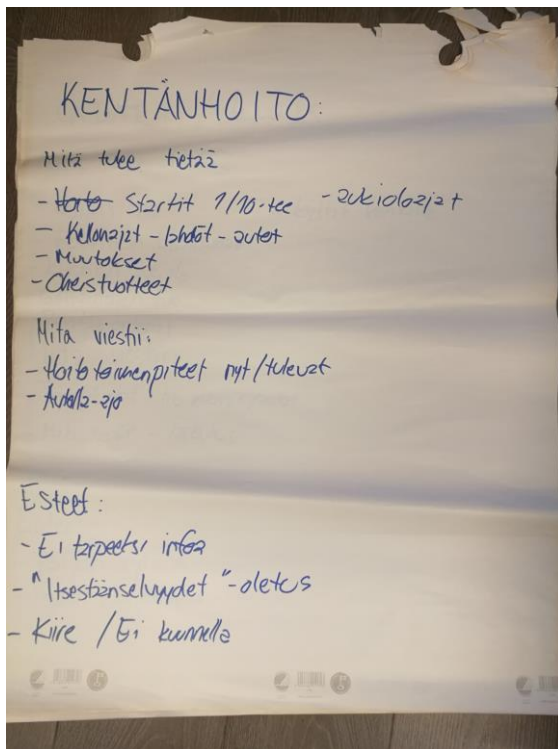 KENTÄNHOITO:
Mitä tulee tietää
- Startit 1/10-tee - aukioloajat
- Kellonajat - lähdöt - autot
- Muutokset
- Oheistuotteet
Mitä viestii:
- Hoitotoimenpiteet nyt/tulevat
- Autolla-ajo
Esteet:
- Ei tarpeeksi infoa
- "Itsestäänselvyydet"-oletus
- Kiire / Ei kuunnella